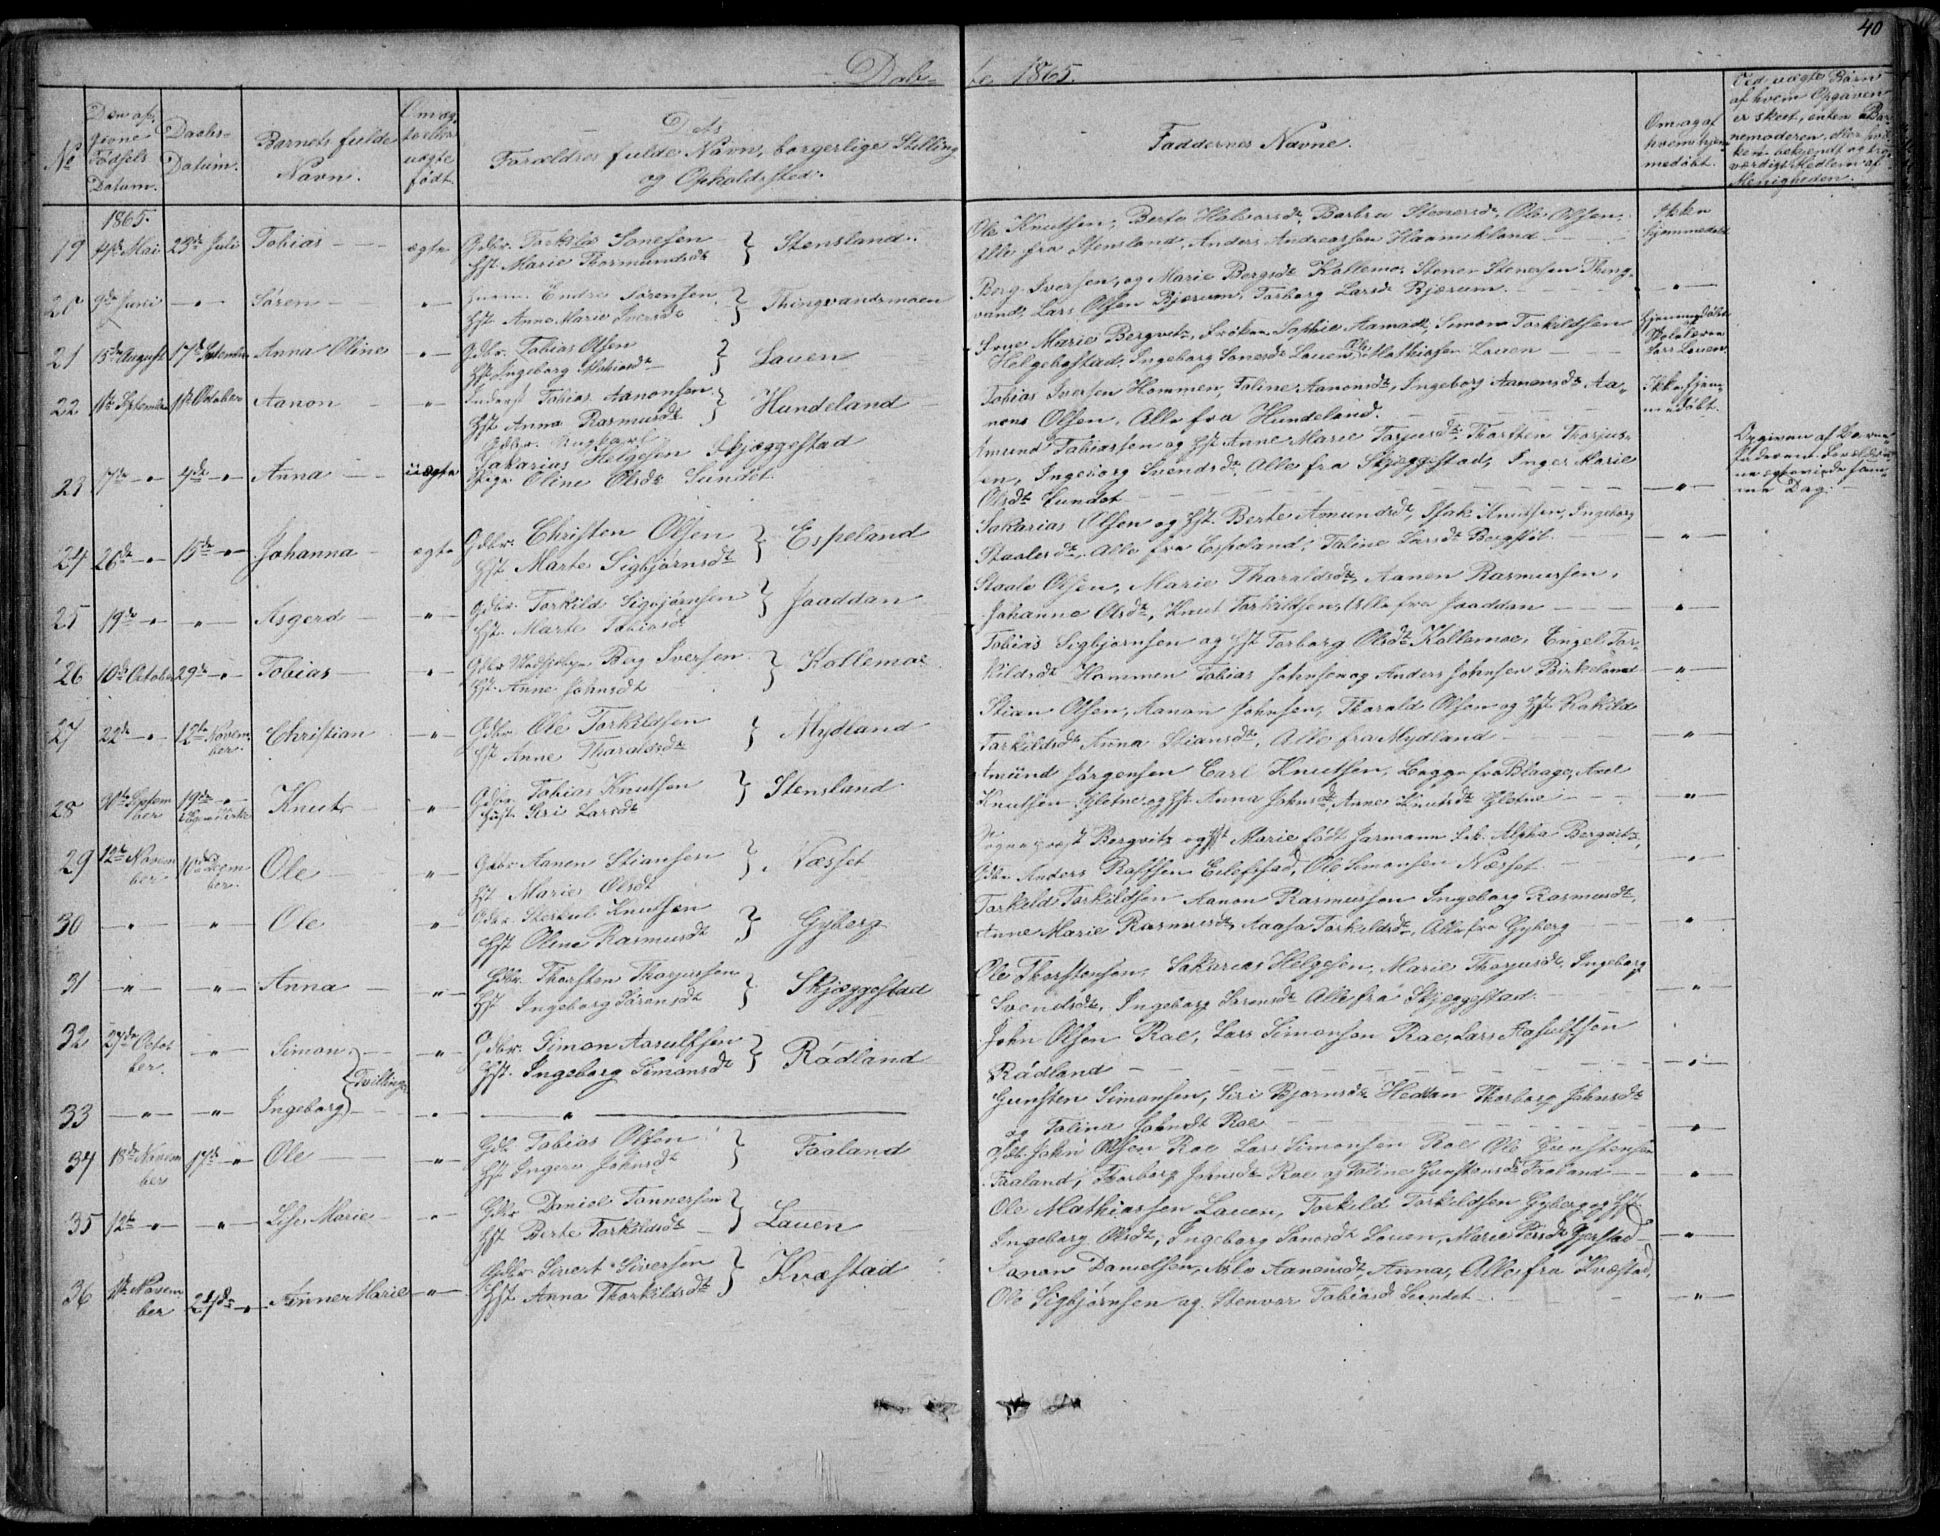 40
Døb- te 1865.
No
Den op-
givne
Fødsels
Datum.
Daabs-
Datum.
Barnets fulde
Navn.
Om æg-
te eller
uægte
født.
Dets
Forældres fulde Navn, borgerlige Stilling
og Opholdssted.
Faddernes Navne.
Om og af
hvem hjem-
medøbt.
Ved uægte Børn
af hvem Opgaven
er skeet, enten Bar-
nemoderen, eller hvil-
ken bekjendt og tro-
værdigt Medlem af
Menigheden.
1865.
19 4de Mai 23de Juli Tobias ægte Gdbr. Torkild Tonesen
Hst. Marie Thormundsdt } Stensland.
Ole Knutsen, Berte Halvorsdt, Barbra Stenersdt, Ole Olsen,
Alle fra Stensland, Anders Andreassen Haamikland
Ikke
hjemmedøbt
20 9de Juni " Søren " Endre Sørensen
Hst. Anne Marie Iversdt } Thingvandsmoen
Berg Iversen, og Marie Bergsdt Kollemo, Stener Stenersen Thing-
vand, Lars Olsen Bjærum, Torborg Larsdt Bjærum.
"
21 15de August 17de Septembr Anna Oline " Gdbr. Tobias Olsen
Hst. Ingeborg Mathiasdt } Lauen
Frue Marie Bergvitz, Frøken Sophie Aamodt, Simon Torkildsen
Helgebostad, Ingeborg Tonesdt Lauen, Ole Mathiasen Lauen
Hjemmedøbt
Skolelærer
Lars Lauen
22 11te Septembr 1ste October Aanon " Inderst Tobias Aanonsen
Hst. Anna Rasmusdt } Hundeland
Tobias Iversen Hommen, Taline Aanonsdt, Ingeborg Aanonsdt, Aa-
nons Olsen, Alle fra Hundeland.
Ikke hjem-
medøbt.
23 17de " 4de " Anna uægte Gdbr. Ungkarl
Sakarias Helgesen Skjæggestad
Pige Oline Olsdt Sundet
Amund Tobiassen og Hst Anne Marie Torjusdt, Thorsten Thorjus-
en, Ingeborg Svendsdt Alle fra Skjæggestad, Inger Marie
Olsdt Sundet
"
Opgiven af Barne-
faderen. Forældre-
ne egteviede sam-
me Dag.
24 26de " 15de " Johanna ægte Gdbr. Christen Olsen
Hst. Marte Sigbjørnsdt } Espeland
Sakarias Olsen og Hst. Berte Amundsdt, Isak Knutsen, Ingeborg
Staalesdt, Alle fra Espeland, Taline Larsdt Bergstøl
"
25 19de " " Asgerd " Gdbr. Torkild Sigbjørnsen
Hst. Marte Tobiasdt } Jaaddan
Staale Olsen, Marie Tharaldsdt, Aanen Rasmussen,
Johanne Olsdt, Knut Torkildsen, Alle fra Jaaddan
"
26 10de October 29de " Tobias " Berg Iversen
Hst. Anne Johnsdt } Kollemoe
Tobias Sigbjørnsen og Hst Torborg Olsdt Kollemoe, Engel Tor-
kildsdt Hommen Tobias Johnsen og Anders Johnsen Birkeland
"
27 22de " 12te Novem-
ber. Christian " Gdbr. Ole Torkildsen
Hst. Anne Tharaldsdt } Mydland
Stian Olsen, Aanon Johnsen, Tharald Olsen og Hst Rakild
Torkildsdt Anna Stiansdt, Alle fra Mydland
"
28 Septem-
ber 19de " Knut " Gdbr. Tobias Knutsen
Hust. Siri Larsdt } Stensland
Amund Jørgensen Carl Knutsen, Begge fra Blaage, Axel
Knutsen Glotne, og Hst Anna Johnsdt, Anne Knutsdt Glotne
"
29 12te Novem-
ber 10de Decem-
ber. Ole " Gdbr. Aanen Stiansen
Hst Marie Olsdt } Næsset
Sogneprest Bergvitz og Hst Marie født Jarmann Alpha Bergvitz,
Gdbr Anders Rolfsen Eilefstad, Ole Simonsen Næsset
"
30 " " Ole " Gdbr. Sterkul Knutsen
Hst Oline Rasmusdt } Gyberg
Torkild Torkildsen Aanon Rasmussen Ingeborg Rasmusdt,
Anne Marie Rasmusdt, Aaasa Torkildsdt, Alle fra Gyberg
"
31 " " Anna " Gdbr. Thorsten Thorjussen
Hst Ingeborg Sørensdt } Skjæggestad
Ole Thorstensen, Sakarias Helgesen, Marie Thorjusdt, Ingeborg
Svendsdt, Ingeborg Sørensdt Alle fra Skjeggestad.
"
32 27de Octo-
ber. " Simon } Tvillinger " Gdbr. Simon Aasulfsen
Hst. Ingeborg Simonsdt } Rødland
John Olsen Roe, Lars Simonsen Roe, Lars Aasulfsen
Rødland
"
33 " " Ingeborg " "
Gunsten Simonsen, Siri Bjornsdt Heddan Thorborg Johnsdt
og Talina Johnsdt Roe
"
34 18de Novem-
ber 17de " Ole " Gdbr Tobias Olsen
Hst Inger Johnsdt } Faaland
Gdbr John Olsen Roe Lars Simonsen Roe Ole Gunstensen
Faaland, Thorborg Johnsdt Roe og Taline Gunstensdt Faaland
"
35 12te " " Lise Marie " Gdbr Daniel Tonnersen
Hst Berte Torkildsdt } Lauen
Ole Mathiassen Lauen, Torkild Torkildsen Gyberg og Hst
Ingeborg Olsdt, Ingeborg Tonesdt Lauen, Marie Persdt Gjerstad
"
36 Novem-
ber 24de " Anne Marie " Gdbr. Sivert Siversen
Hst. Anna Thorkildsdt } Kvæstad
Aanon Danielsen, Aslo Aanensdt, Anna, Alle fra Kvæstad,
Ole Sigbjørnsen og Stenvor Tobiasd Sundet
"